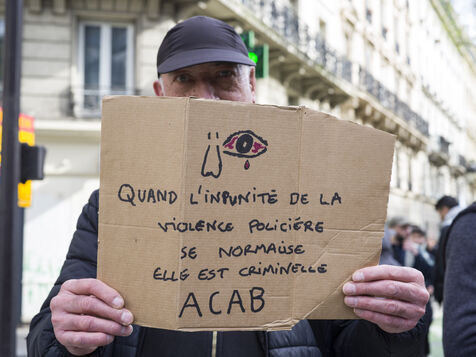 QUAND L'IMPUNITÉ DE LA
VIOLENCE POLICIÈRE
SE NORMALISE
ELLE EST CRIMINELLE
ACAB